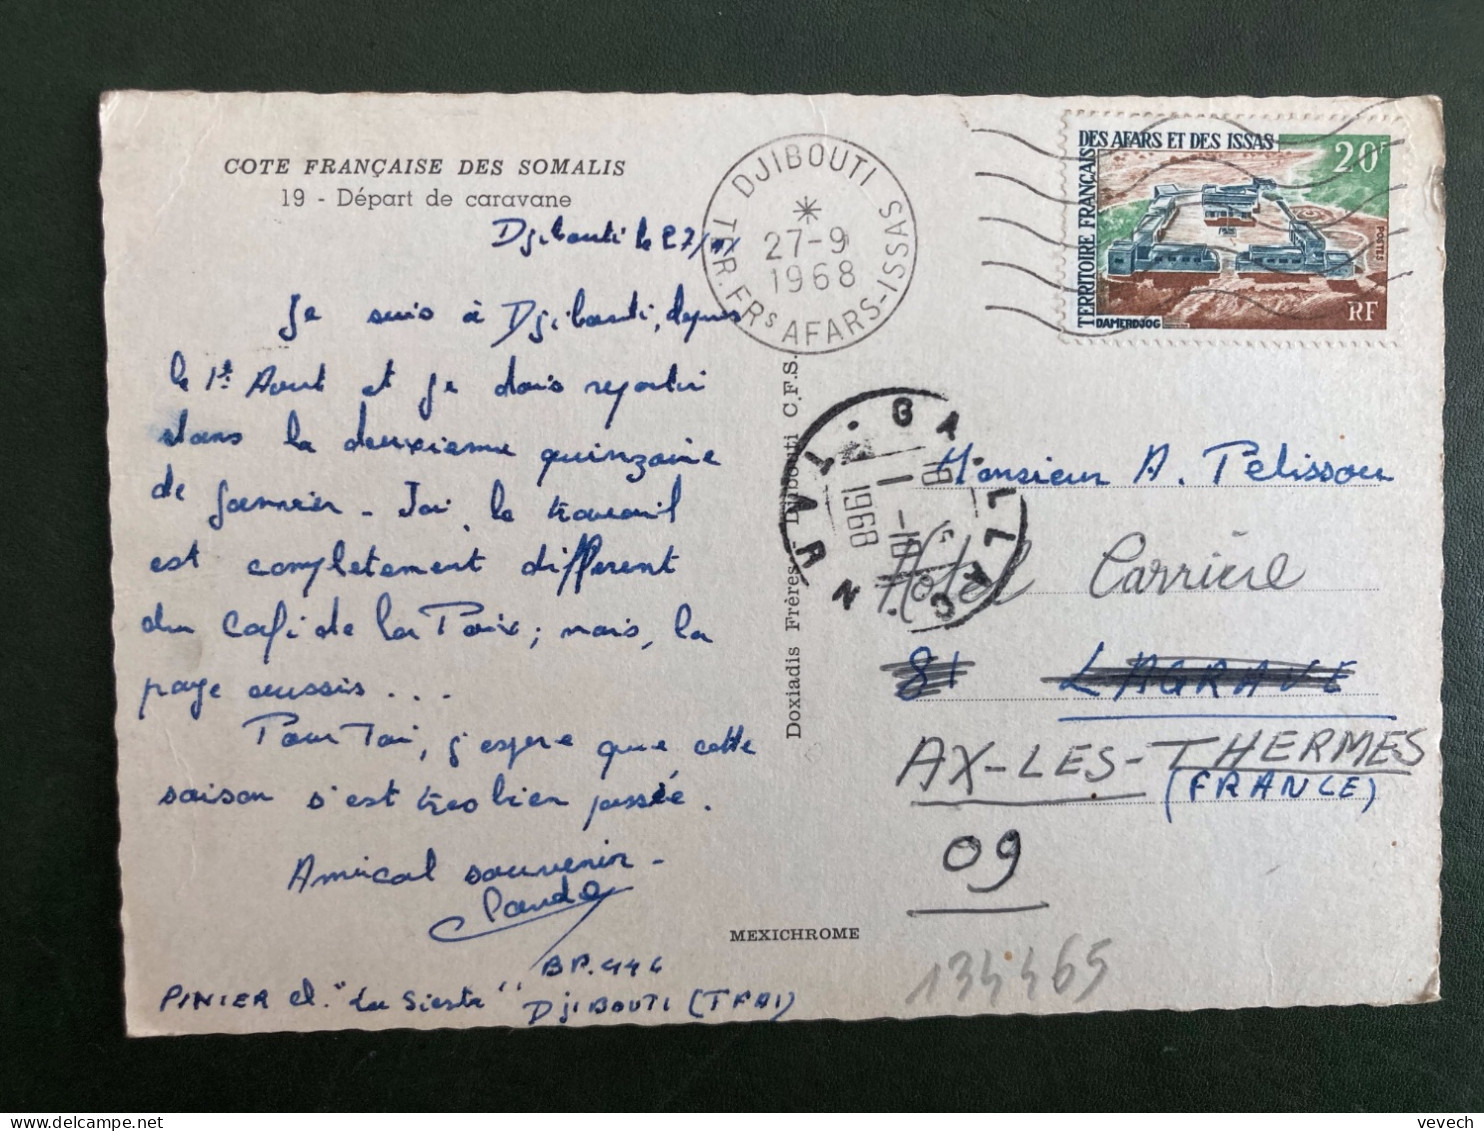 COTE FRANÇAISE DES SOMALIS
19 - Départ de caravane
Djibouti le 27/
Je suis à Djibouti, depuis
le 1er Aout et je dois repartir
dans la deuxième quinzaine
de Janvier - Ici, le travail
est completement different
du Café de la Paix; mais, la
paye aussi ...
Pour Toi, j'espère que cette
saison s'est tres bien passée.
Amical souvenir -
PINIER cl. "La Siesta"
BP. 446
DJIBOUTI (TFAI)
DJIBOUTI
*
27-9
1968
TERR.FRS AFARS-ISSAS
TERRITOIRE FRANÇAIS
DES AFARS ET DES ISSAS
20F
POSTES
RF
DAMERDJOG
GAILLAC
TARN
1-10
1968
Doxiadis Frères - Djibouti C.F.S.
MEXICHROME
Monsieur A. Pelissou
Hotel Carrière
81 LAGRAVE
AX-LES-THERMES
(FRANCE)
09
134465
vevech
delcampe.net